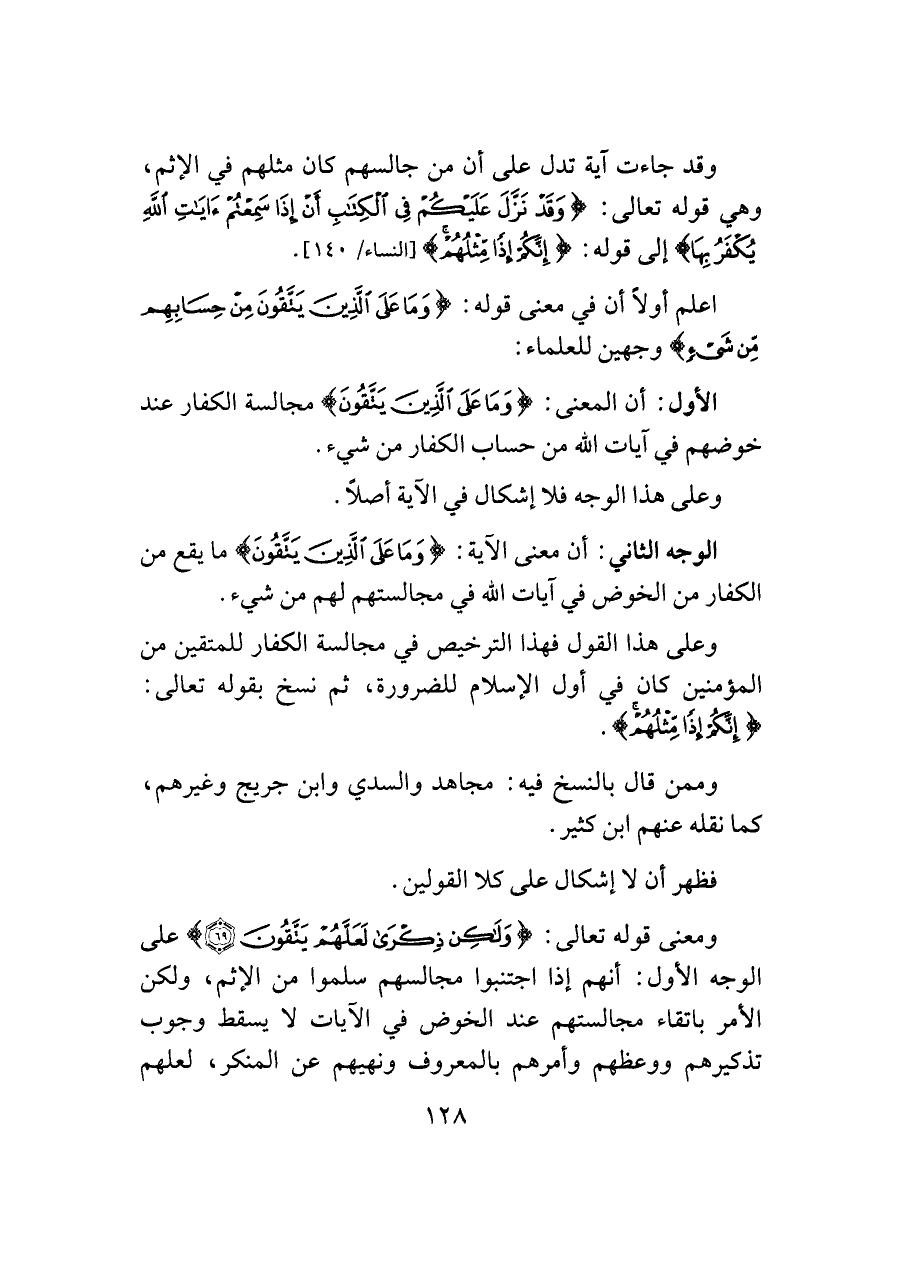 وقد جاءت آية تدل على أن من جالسهم كان مثلهم في الإثم،
وهي قوله تعالى: ﴿وَقَدْ نَزَّلَ عَلَيْكُمْ فِى ٱلْكِتَٰبِ أَنْ إِذَا سَمِعْتُمْ ءَايَٰتِ ٱللَّهِ
يُكْفَرُ بِهَا﴾ إلى قوله: ﴿إِنَّكُمْ إِذًا مِّثْلُهُمْ﴾ [النساء/ ١٤٠].
اعلم أولاً أن في معنى قوله: ﴿وَمَا عَلَى ٱلَّذِينَ يَتَّقُونَ مِنْ حِسَابِهِم
مِّن شَىْءٍ﴾ وجهين للعلماء:
الأول: أن المعنى: ﴿وَمَا عَلَى ٱلَّذِينَ يَتَّقُونَ﴾ مجالسة الكفار عند
خوضهم في آيات الله من حساب الكفار من شيء.
وعلى هذا الوجه فلا إشكال في الآية أصلاً.
الوجه الثاني: أن معنى الآية: ﴿وَمَا عَلَى ٱلَّذِينَ يَتَّقُونَ﴾ ما يقع من
الكفار من الخوض في آيات الله في مجالستهم لهم من شيء.
وعلى هذا القول فهذا الترخيص في مجالسة الكفار للمتقين من
المؤمنين كان في أول الإسلام للضرورة، ثم نسخ بقوله تعالى:
﴿إِنَّكُمْ إِذًا مِّثْلُهُمْ﴾.
وممن قال بالنسخ فيه: مجاهد والسدي وابن جريج وغيرهم،
كما نقله عنهم ابن كثير.
فظهر أن لا إشكال على كلا القولين.
ومعنى قوله تعالى: ﴿وَلَٰكِن ذِكْرَىٰ لَعَلَّهُمْ يَتَّقُونَ ٦٩﴾ على
الوجه الأول: أنهم إذا اجتنبوا مجالسهم سلموا من الإثم، ولكن
الأمر باتقاء مجالستهم عند الخوض في الآيات لا يسقط وجوب
تذكيرهم ووعظهم وأمرهم بالمعروف ونهيهم عن المنكر، لعلهم
١٢٨